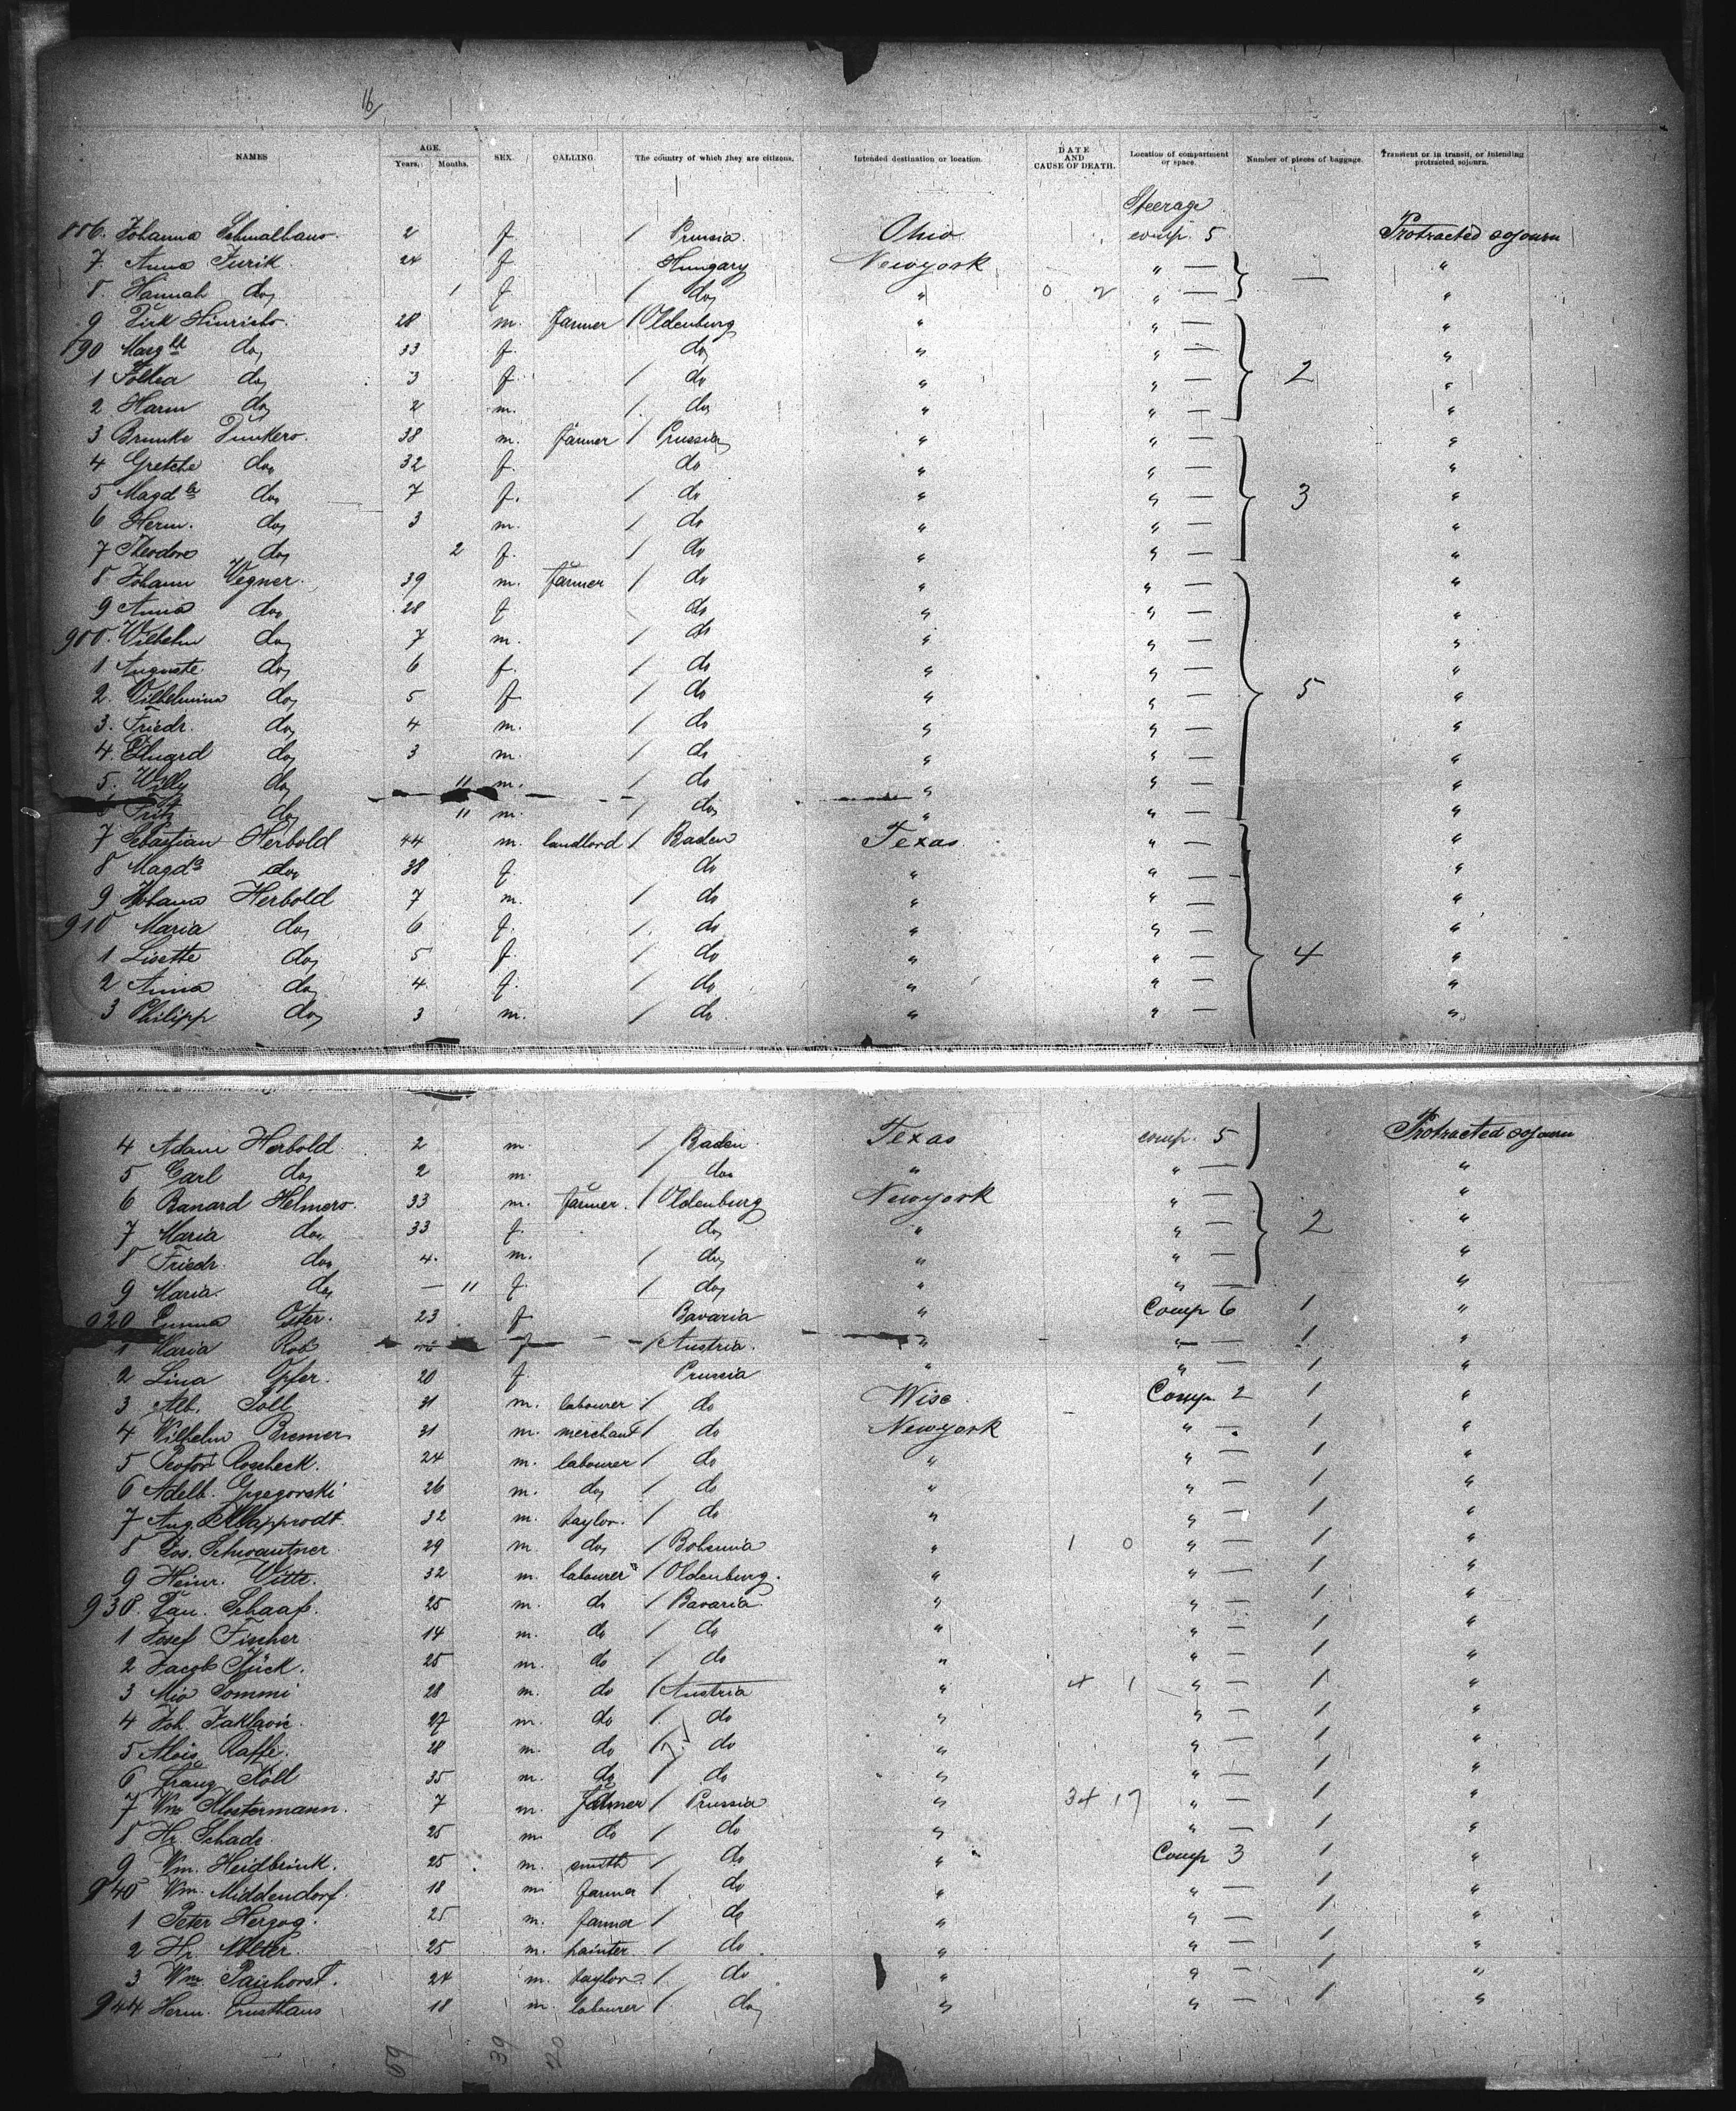 16
NAMES AGE. Years. Months. SEX. CALLING. The country of which they are citizens. Intended destination or location. DATE AND CAUSE OF DEATH. Location of compartment or space. Number of pieces of baggage. Transient or in transit, or intending protracted sojourn.
Steerage
886. Johanna Schmalhaus 2 f / Prussia. Ohio comp. 5 Protracted sojourn
7. Anna 24 f. Hungary Newyork " — — "
8. Hannah do 1 f / do " 0 2 " — "
9 Dirk Hinrichs. 28 m. farmer / Oldenburg " " — "
890 Margth do 33 f. do " " — "
1 Folkea do 3 f / do " " — 2 "
2 Harm do 2 m. / do " " — "
3 Brunke Dunkers. 38 m. farmer / Prussia " " — "
4 Gretche do 32 f. do " " — "
5 Magdle do 7 f. / do " " — 3 "
6 Herm. do 3 m. / do " " — "
7 Theodore do 2 f. / do " " — "
8. Johann Wegner. 39 m. farmer / do " " — "
9 Anna do 28 f do " " — "
900. Wilhelm do 7 m. / do " " — "
1 Auguste do 6 f. / do " " — "
2. Wilhelmine do 5 f / do " " — 5 "
3. Friedr. do 4 m. / do " " — "
4. Eduard do 3 m. / do " " — "
5. Willy do 11 m. / do " " — "
6 Fritz do 11 m. / do " " — "
7 Sebastian Herbold 44 m. landlord / Baden Texas " — "
8 Magda do 38 f do " " — "
9 Johann Herbold 7 m. / do " " — "
910 Maria do 6 f. / do " " — "
1 Lisette do 5 f. / do " " — 4 "
2 Anna do 4. f. / do " " — "
3 Philipp do 3 m. / do " " — "
4 Adam Herbold 2 m. / Baden Texas comp. 5 Protracted sojourn
5 Carl do 2 m. / do " " — "
6 Banard Helmers. 33 m. farmer. / Oldenburg Newyork " — "
7 Maria do 33 f. do " " — 2 "
8 Friedr. do 4. m. / do " " — "
9 Maria. do — 11 f / do " " — "
920 Emma Oster. 23 f Bavaria " Comp 6 1 "
1 Maria Rob f / Austria. " " — 1 "
2 Lina Opfer. 20 f. Prussia " " — 1 "
3 Alb. Soll 31 m. labourer / do Wisc. Comp. 2 1 "
4 Wilhelm Bremer 31 m. merchant / do Newyork " — 1 "
5 Roscheck. 24 m. labourer / do " " — 1 "
6 Adelb. Grzegorski 26 m. do / do " " — 1 "
7 Aug. Klapprodt. 32 m. taylor. / do " " — 1 "
8 Jos. Schwantner 29 m. do / Bohemia " 1 0 " — 1 "
9 Heinr. Witte. 32 m. labourer / Oldenburg. " " — 1 "
930. Schaaf. 25 m. do / Bavaria " " — 1 "
1 Josef Fischer 14 m. do / do " " — 1 "
2 Jacob Stück. 25 m. do / do " " — 1 "
3 Mio Sommi 28 m. do / Austria " 4 1 " — 1 "
4 Joh. Jaklavic. 27 m. do / do " " — 1 "
5 Alois Raffe. 28 m. do / do " " — 1 "
6 Franz Köll 35 m. do / do " " — 1 "
7 Wm Klostermann. 7 m. farmer / Prussia " 34 17 " — 1 "
8 Hr. Schade. 25 m do / do " " — 1 "
9 Wm. Heidbrink. 25 m. smith / do " Comp 3 1 "
940 Wm. Middendorf. 18 m. farmer / do " " — 1 "
1 Peter Herzog. 25 m. farmer / do " " — 1 "
2 Hr. Molter. 25 m. painter / do " " — 1 "
3 Wm. 24 m. taylor. / do " " — 1 "
944 Herm. Ernsthaus 18 m. labourer / do " " — 1 "
59 39 20